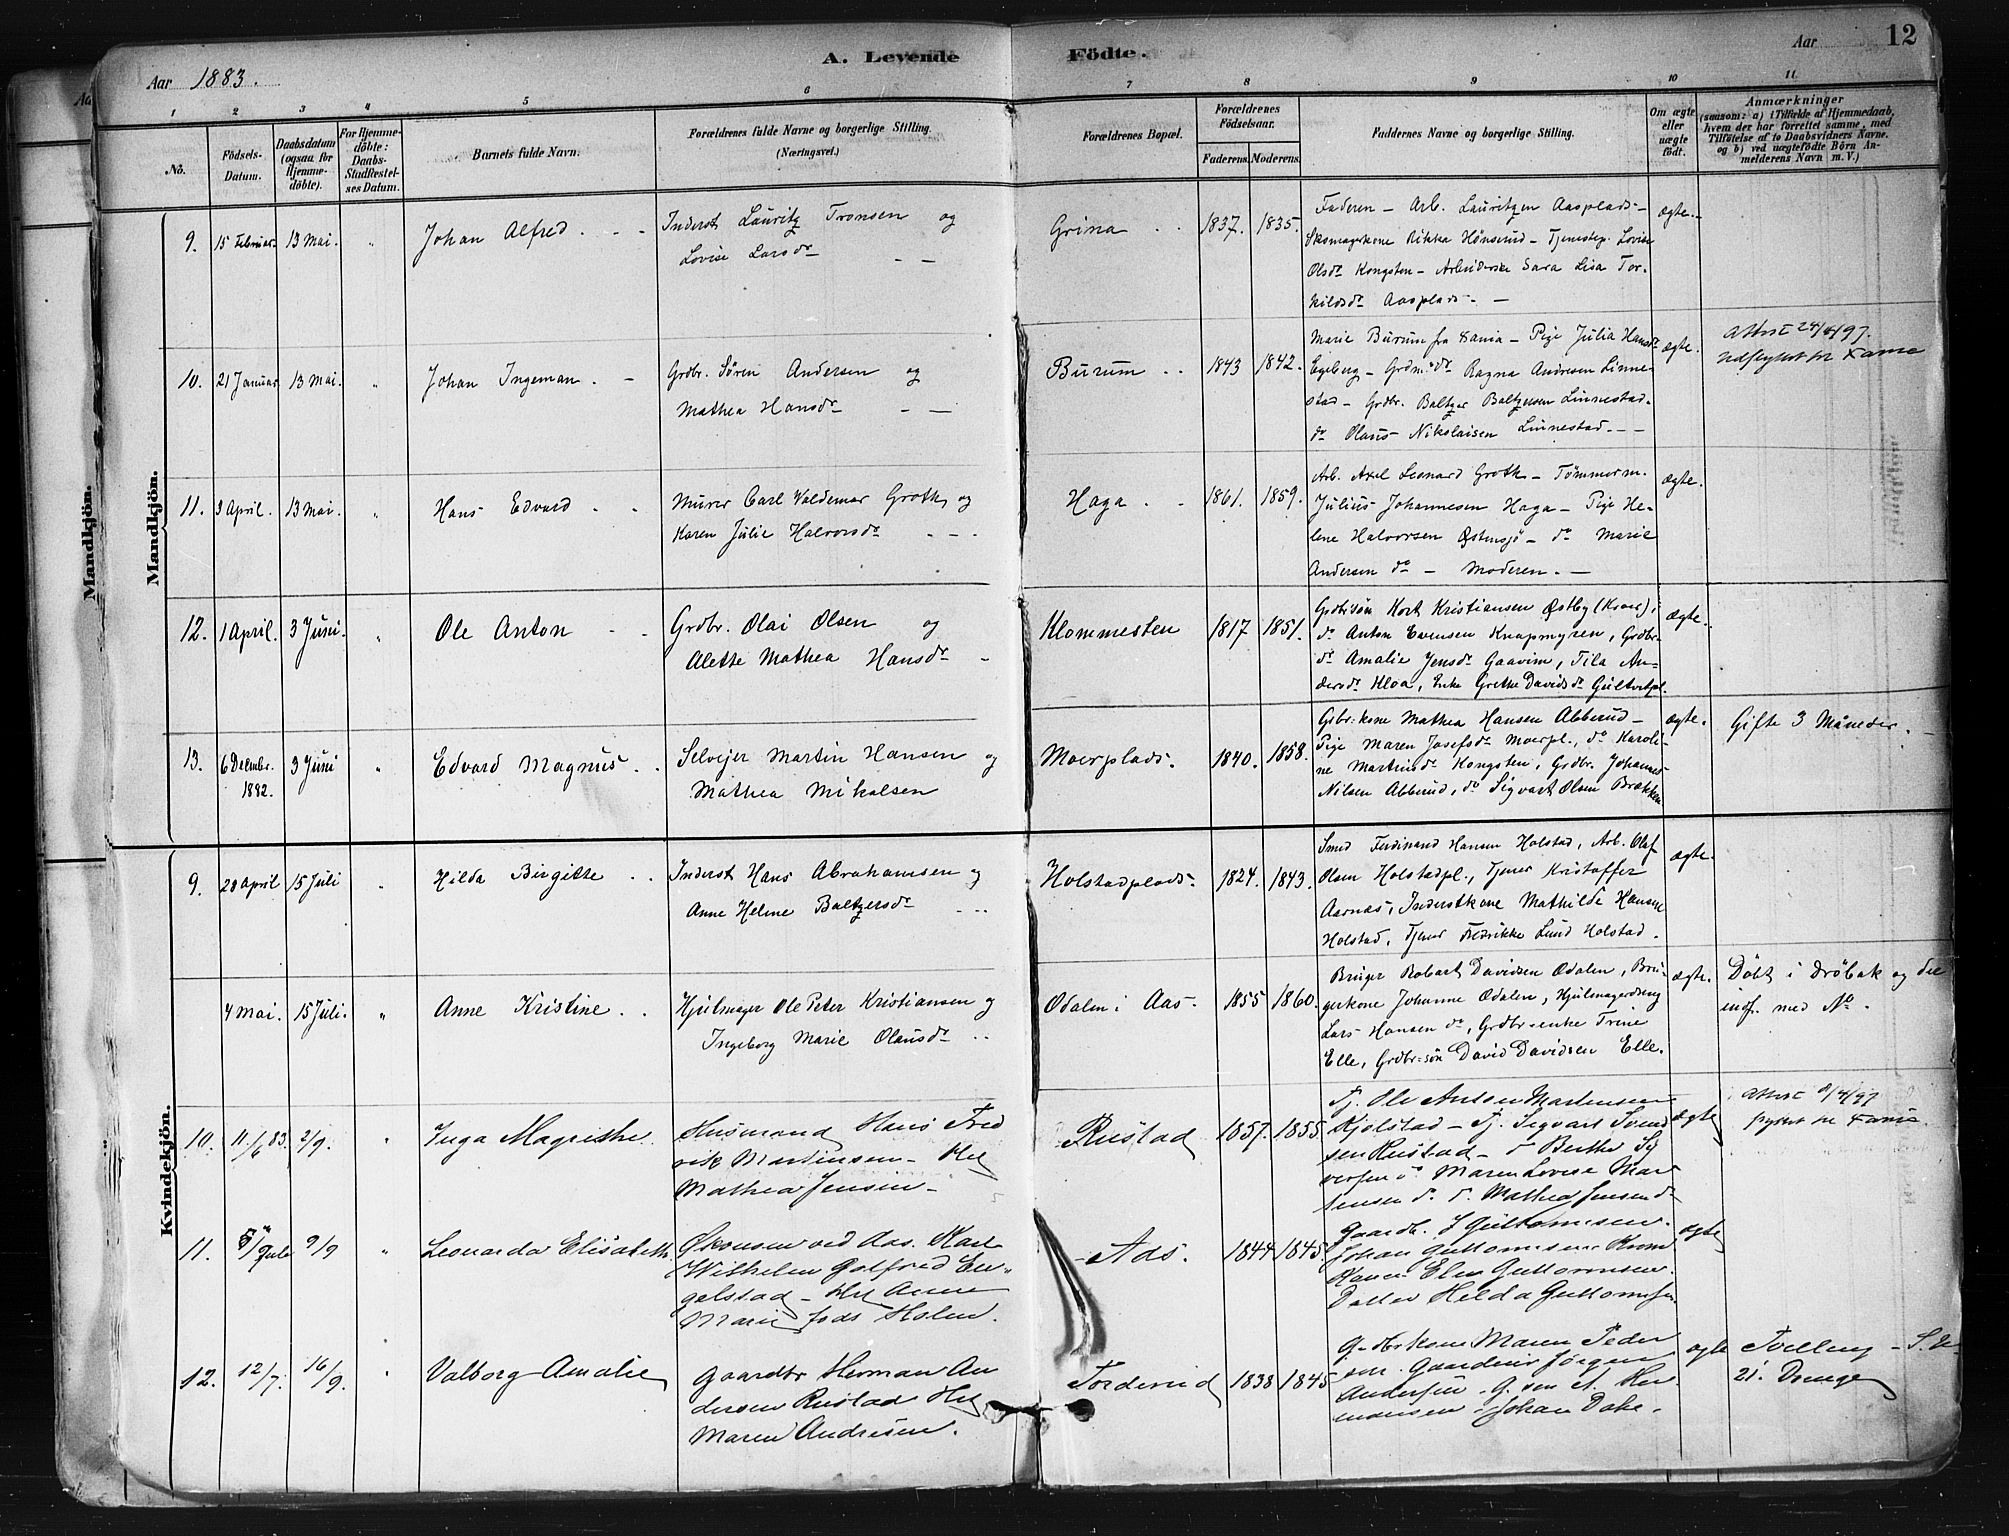 12
A. Levende Födte.
Aar 1883.
Aar
1 2 3 4 5 6 7 8 9 10 11
No.
Födsels-Datum.
Daabsdatum (ogsaa for Hjemmedöbte).
For Hjemmedöbte: Daabs-Stadfestelses Datum.
Barnets fulde Navn.
Forældrenes fulde Navne og borgerlige Stilling. (Næringsvei.)
Forældrenes Bopæl.
Forældrenes Födselsaar.
Faderens. Moderens.
Faddernes Navne og borgerlige Stilling.
Om ægte eller uægte födt.
Anmærkninger
(saasom: a) i Tilfælde af Hjemmedaab,
hvem der har forrettet samme, med
Tilföielse af to Daabsvidners Navne,
og b) ved uægtefödte Börn Anmelderens Navn m. V.)
Mandkjön.
Mandkjön.
9. 15 Februar 13 Mai. " Johan Alfred Inderst Lauritz Tronsen og
Lovise Larsdr
Grina 1837. 1835.
Faderen – Arb. Lauritzen Aasplads –
Skomagerkone Rikka Hönsrud – Tjenestep. Lovise
Olsdr Kongsten – Arbeiderske Sara Lisa Tor-
kildsdr Aasplads –
ægte.
10. 21 Januar 13 Mai. " Johan Ingeman Grdbr. Sören Andersen og
Mathea Hansdr
Burum 1843 1842.
Marie Burum fra Xania – Pige Julia Hansdr
Egeberg – Grdm.dr Ragna Andresen Linne-
stad – Grdbr. Baltzer Baltzersen Linnestad.
do Olaus Nikolaisen Linnestad –
ægte.
Attest 24/4/97.
Udflyttet til Xania
11. 3 April. 13 Mai. " Hans Edvard Murer Carl Valdemar Groth og
Karen Julie Halvorsdr
Haga 1861. 1859.
Arb. Axel Leonard Groth – Tömmerm.
Julius Johannesen Haga – Pige He-
lene Halvorsen Östensjö – do Marie
Andersen do – Moderen. –
ægte.
12. 1 April. 3 Juni. " Ole Anton Grdbr. Olai Olsen og
Alette Mathea Hansdr
Klommesten 1817 1851.
Grdbrsön Kort Kristiansen Østby (Kroer),
do Anton Evensen Knapmyren, Grdbr.
dr Amalie Jensdr Gaavim, Tila An-
dersdr Kloa, Enke Grethe Davidsdr Gultvetpl.
ægte.
13. 6 Decembr. 1882. 3 Juni " Edvard Magnus Selveier Martin Hansen og
Mathea Mikalsen
Moerplads. 1840. 1858.
Grbr.kone Mathea Hansen Abberud –
Pige Maren Josefsdr Moerpl., do Karoli-
ne Martinsdr Kongsten, Grdbr. Johannes
Nilsen Abberud, do Sigvart Olsen Brækken
ægte.
Gifte 3 Måneder.
Kvindekjön.
9. 28 April 15 Juli " Hilda Birgitte Inderst Hans Abrahamsen og
Anne Helene Baltzersdr
Holstadplads. 1824. 1843.
Smed Ferdinand Hansen Holstad, Arb. Olaf
Olsen Holstadpl., Tjener Kristoffer
Aarnæs, Inderstkone Mathilde Hansen
Holstad, Tjener Fredrikke Lund Holstad.
ægte.
4 Mai. 15 Juli. " Anne Kristine Hjulmager Ole Peter Kristiansen og
Ingeborg Marie Olausdr
Ødalen i Aas. 1855 1860.
Bruger Robart Davidsen Ødalen, Bru-
gerkone Johanne Ødalen, Hjulmagerdreng
Lars Hansen do, Grdbr-enke Trine
Elle, Grdbr-sön David Davidsen Elle.
ægte.
Döbt i Dröbak og der
indf. med No.
10. 11/6 83. 2/9. " Inga Magrethe. Husmand Hans Fred
rik Martinsen – Hu
Mathea Jensen –
Rustad 1857. 1855
Tj. Ole Anton Martensen
Kjölstad – Tj. Sigvart Svend
sen Rustad – do Berthe Sy
versen do Maren Lovise Mar
tensen do do Mathea Jensen do
ægte
Attest 9/4/97
flyttet til Xania.
11. 9/9 " Leonarda Elisabeth. Økonsen ved Aas. Karl
Wilhelm Gotfred En-
gelstad – Hu Anne
Marie föds Holm.
Aas. 1844 1845.
Gaardb. J Guttormsen.
Johan Guttormsen
Kone Elen Guttormsen.
Datter Hilda Guttormsen.
ægte
12. 12/7. 16/9. " Valborg Amalie Gaardbr Herman An
dersen Rustad Hu
Maren Andresen.
Torderud 1838 1845
G-brkone Maren Peder
sen. Gaardeier Jörgen
Andersen – G. sön A. Her
mansen – Johan Dahl.
ægte
Tvelling –
21. Drenge